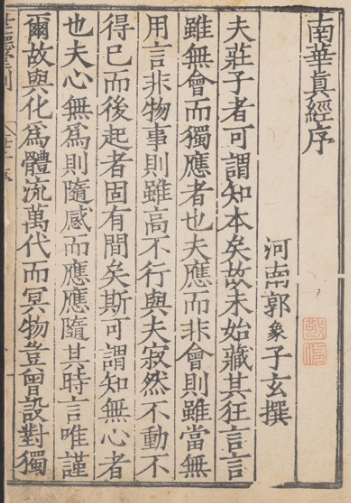 南華真經序
河南郭象子玄撰
夫莊子者可謂知本矣故未始藏其狂言言
雖無會而獨應者也夫應而非會則雖當無
用言非物事則雖高不行與夫寂然不動不
得已而後起者固有間矣斯可謂知無心者
也夫心無爲則隨感而應應隨其時言唯謹
爾故與化爲體流萬代而冥物豈曾設對獨